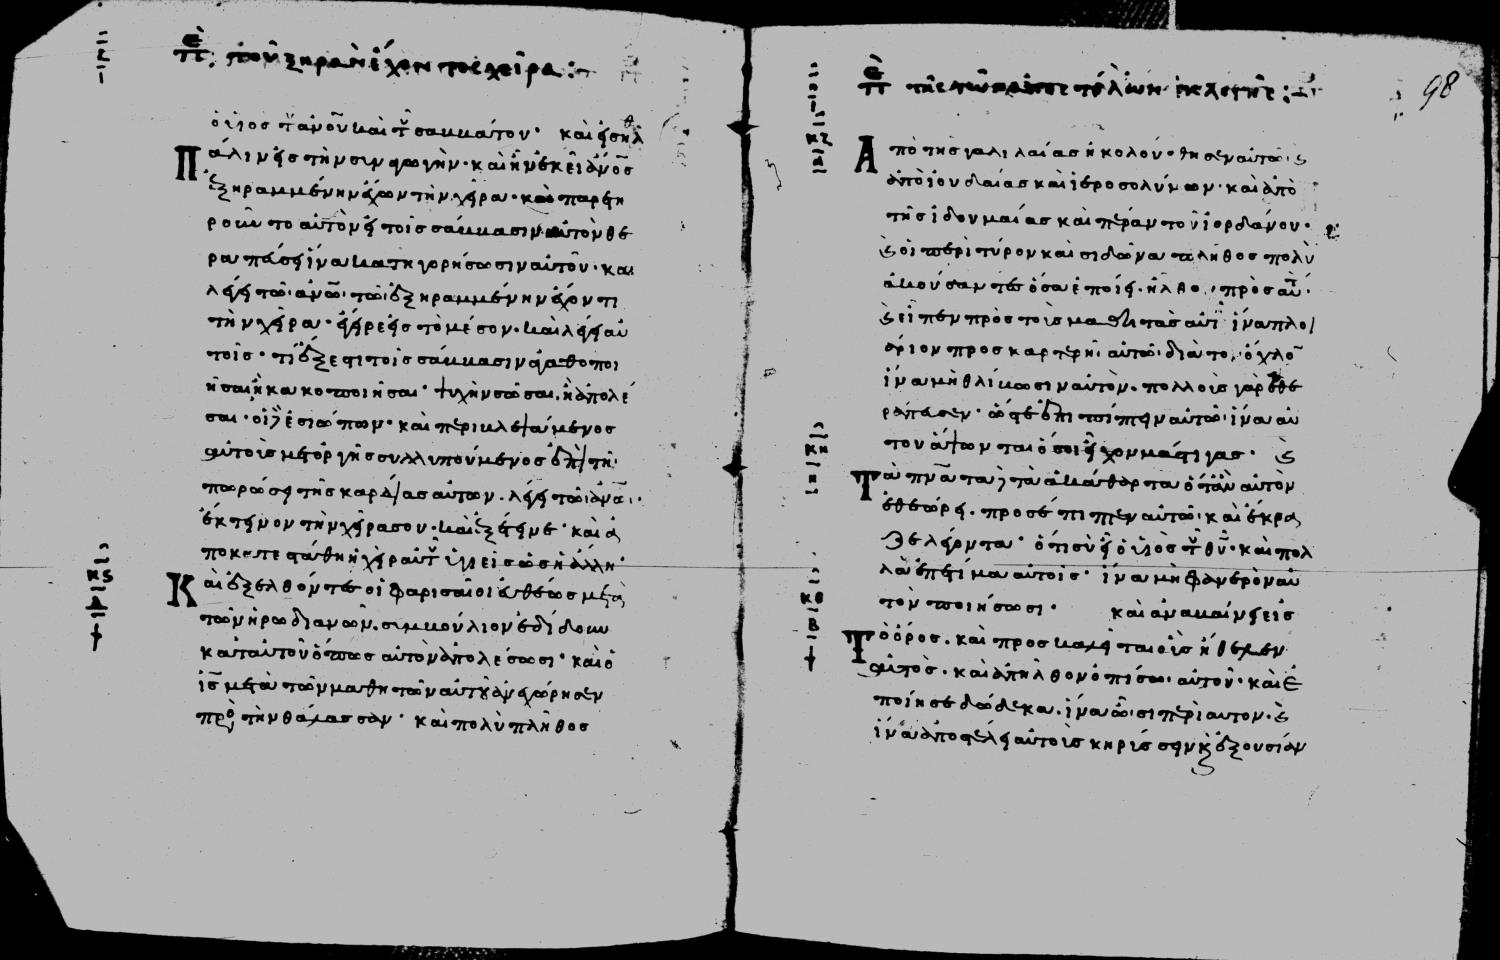 περὶ τοῦ ξηρὰν ἔχοντος χεῖρα :~
ὁ υἱὸς τοῦ ἀνοῦ καὶ τοῦ σαμμάτου· καὶ εἰσῆλθ
Πάλιν εἰς τὴν συναγωγὴν· καὶ ἦν ἐκεῖ ἀνος
ἐξηραμμένην ἔχων τὴν χεῖρα· καὶ παρετη
ροῦντο αὐτὸν εἰ τοῖς σάμμασιν αὐτὸν θε
ραπεύσει ἵνα κατηγορήσωσιν αὐτοῦ· και
λέγει τῶ ἀνῶ τῶ ἐξηραμμένην ἔχοντι
τὴν χεῖρα· ἔγειρε εἰς τὸ μέσον· καὶ λέγει αυ
τοῖς· τί ἔξεστι τοῖς σάμμασιν ἀγαθοποι
ῆσαι ἢ κακοποιῆσαι· ψυχὴν σῶσαι, ἢ ἀπολέ
σαι· οἱ δὲ ἐσιώπων· καὶ περιβλεψάμενος
αὐτοὺς μετ' ὀργῆς συλλυπούμενος ἐπὶ τῆ
πωρώσει τῆς καρδίας αὐτῶν. λέγει τῶ ἀνω·
ἔκτεινον τὴν χεῖρα σου· καὶ ἐξέτεινε· καὶ ἀ
ποκατεστάθη ἡ χεὶρ αὐτοῦ ὑγιεὶς ὡς ἡ ἄλλη·
Καὶ ἐξελθόντες οἱ φαρισαῖοι εὐθέως μετὰ
τῶν ἡρωδιανῶν. συμβούλιον ἐδίδουν
κατ' αὐτοῦ ὅπως αὐτὸν ἀπολέσωσι· καὶ ὁ
ις μετὰ τῶν μαθητῶν αὐτοῦ ἀνεχώρησεν
πρὸς τὴν θάλασσαν· καὶ πολὺ πλῆθος
κϛ
περὶ τῆς τῶν ἀποστόλων ἐκλογῆς :~
98
κζ
Ἀπὸ τῆς γαλιλαίας ἠκολούθησεν αὐτῶ· κ
ἀπὸ ἰουδαίας καὶ ἱεροσολύμων· καὶ ἀπὸ
τῆς ἰδουμαίας καὶ πέραν τοῦ ἰορδάνου·
κ οἱ περὶ τύρον καὶ σιδῶνα πλῆθος πολὺ
ἀκούσαντες ὅσα ἐποίει· ἦλθον πρὸς αὐτ·
κ εἶπεν πρὸς τοὺς μαθητὰς αὐτοῦ ἵνα πλοι
άριον προσκαρτερῆ αὐτῶ· διὰ τὸν ὄχλον
ἵνα μὴ θλίβωσιν αὐτὸν. πολλοὺς γὰρ ἐθε
ράπευσεν· ὥστε ἐπιπίπτειν αὐτῶ· ἵνα αὐ
τοῦ ἅψωνται ὅσοι εἶχον μάστιγας· κ
κη
Τὰ πνα τὰ ἀκάθαρτα ὅταν αὐτὸν
ἐθεώρει. προσέπιπτεν αὐτῶ· καὶ ἔκρα
ζε λέγοντα· ὅτι σὺ εἶ ὁ υἱὸς τοῦ θυ· καὶ πολ
λὰ ἐπετίμα αὐτοῖς· ἵνα μὴ φανερὸν αὐ
τὸν ποιήσωσι· καὶ ἀναβαίνει εἰς
κθ
Τὸ ὄρος. καὶ προσκαλεῖται οὓς ἤθελεν
αὐτὸς. καὶ ἀπῆλθον ὀπίσω αὐτοῦ· καὶ ἐ
ποίησε δώδεκα. ἵνα ὦσι περὶ αυτον· κ
ἵνα ἀποστέλει αὐτοὺς κηρύσσειν κ ἐξουσίαν